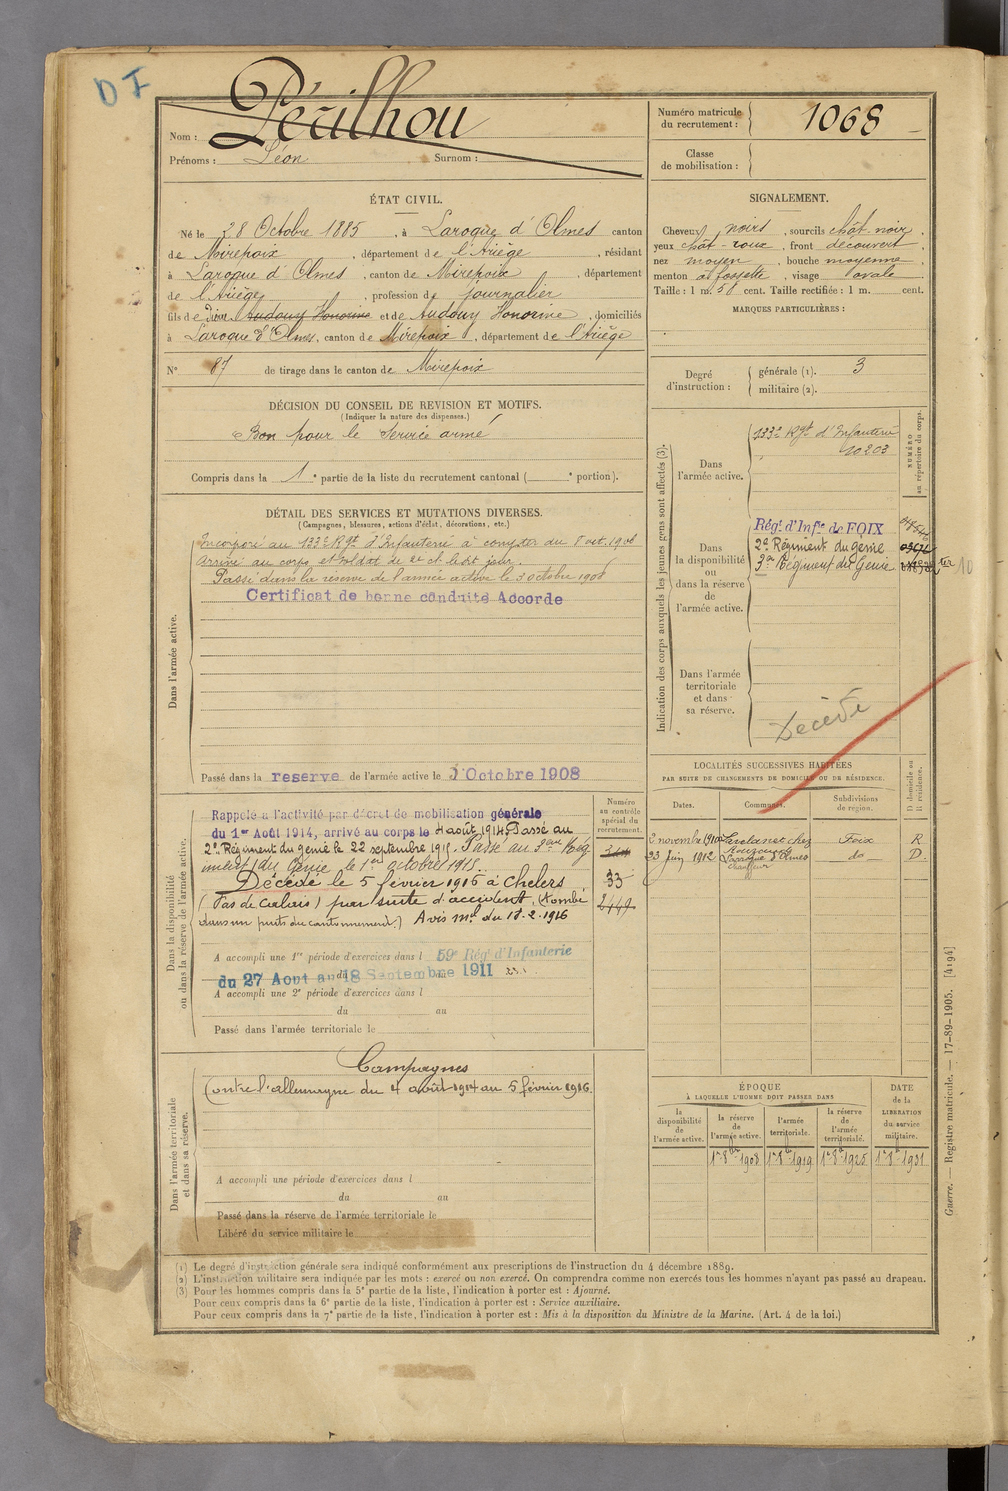 DI
Nom : Périlhou
Prénoms : Léon Surnom :
Numéro matricule du recrutement : 1068
Classe de mobilisation :
ÉTAT CIVIL.
Né le 28 Octobre 1885, à Laroque d'Olmes canton
de Mirepoix, département de l'Ariège, résidant
à Laroque d'Olmes, canton de Mirepoix, département
de l'Ariège, profession de journalier
fils de Audouy Honorine et de Audouy Honorine, domiciliés
à Laroque d'Olmes, canton de Mirepoix, département de l'Ariège
N° 87 de tirage dans le canton de Mirepoix
SIGNALEMENT.
Cheveux noirs, sourcils chât-noir,
yeux chât-roux, front découvert
nez moyen, bouche moyenne,
menton à fossette, visage ovale
Taille : 1 m. 58 cent. Taille rectifiée : 1 m. cent.
MARQUES PARTICULIÈRES :
Degré d'instruction : générale (1). 3
militaire (2).
DÉCISION DU CONSEIL DE REVISION ET MOTIFS.
(Indiquer la nature des dispenses.)
Bon pour le Service armé
Compris dans la 1e partie de la liste du recrutement cantonal ( e portion).
DÉTAIL DES SERVICES ET MUTATIONS DIVERSES.
(Campagnes, blessures, actions d'éclat, décorations, etc.)
Dans l'armée active.
Incorporé au 133e Rgt d'Infanterie à compter du 8 oct. 1906
Arrivé au corps et soldat de 2e cl. ledit jour.
Passé dans la réserve de l'armée active le octobre 1908
Certificat de bonne conduite Accordé
Passé dans la reserve de l'armée active le 1 Octobre 1908
Indication des corps auxquels les jeunes gens sont affectés (3).
NUMÉRO au répertoire du corps.
Dans l'armée active.
133e Rgt d'Infanterie
10203
Dans la disponibilité ou dans la réserve de l'armée active.
Rég. d'Infie de FOIX
2e Régiment du génie
3e Régiment du Génie
ter 10
Dans l'armée territoriale et dans sa réserve.
Décédé
LOCALITÉS SUCCESSIVES HABITÉES
PAR SUITE DE CHANGEMENTS DE DOMICILE OU DE RÉSIDENCE.
Dates. Communes. Subdivisions de région. D domicile ou R résidence.
2 novembre 1910 chez Foix R
23 Juin 1912 Laroque d'Olmes do D
Dans la disponibilité ou dans la réserve de l'armée active.
Numéro au contrôle spécial du recrutement.
Rappelé à l'activité par décret de mobilisation générale
du 1er Août 1914, arrivé au corps le 4 août 1914. Passé au
2e Régiment du génie le 22 septembre 1915. Passé au 3eme Rég
iment du Génie le 1er octobre 1915.
Décédé le 5 février 1916 à Chelers
(Pas de Calais) par suite d'accident, (tombé
dans un puits du cantonnement.) Avis ml du 18.2.1916
33
2449
A accompli une 1re période d'exercices dans l 59e Régt d'Infanterie
du 27 Aout au 18 Septembre 1911
A accompli une 2e période d'exercices dans l
du au
Passé dans l'armée territoriale le
Dans l'armée territoriale et dans sa réserve.
Campagnes
Contre l'allemagne du 4 août 1914 au 5 février 1916.
A accompli une période d'exercices dans l
du au
Passé dans la réserve de l'armée territoriale le
Libéré du service militaire le
ÉPOQUE
À LAQUELLE L'HOMME DOIT PASSER DANS
la disponibilité de l'armée active. la réserve de l'armée active. l'armée territoriale. la réserve de l'armée territoriale. DATE de la LIBÉRATION du service militaire.
1er 8bre 1908 1er 8bre 1919 1er 8bre 1925 1er 8bre 1931
(1) Le degré d'instruction générale sera indiqué conformément aux prescriptions de l'instruction du 4 décembre 1889.
(2) L'instruction militaire sera indiquée par les mots : exercé ou non exercé. On comprendra comme non exercés tous les hommes n'ayant pas passé au drapeau.
(3) Pour les hommes compris dans la 5e partie de la liste, l'indication à porter est : Ajourné.
Pour ceux compris dans la 6e partie de la liste, l'indication à porter est : Service auxiliaire.
Pour ceux compris dans la 7e partie de la liste, l'indication à porter est : Mis à la disposition du Ministre de la Marine. (Art. 4 de la loi.)
Guerre. — Registre matricule. — 17-89-1905. [4194]